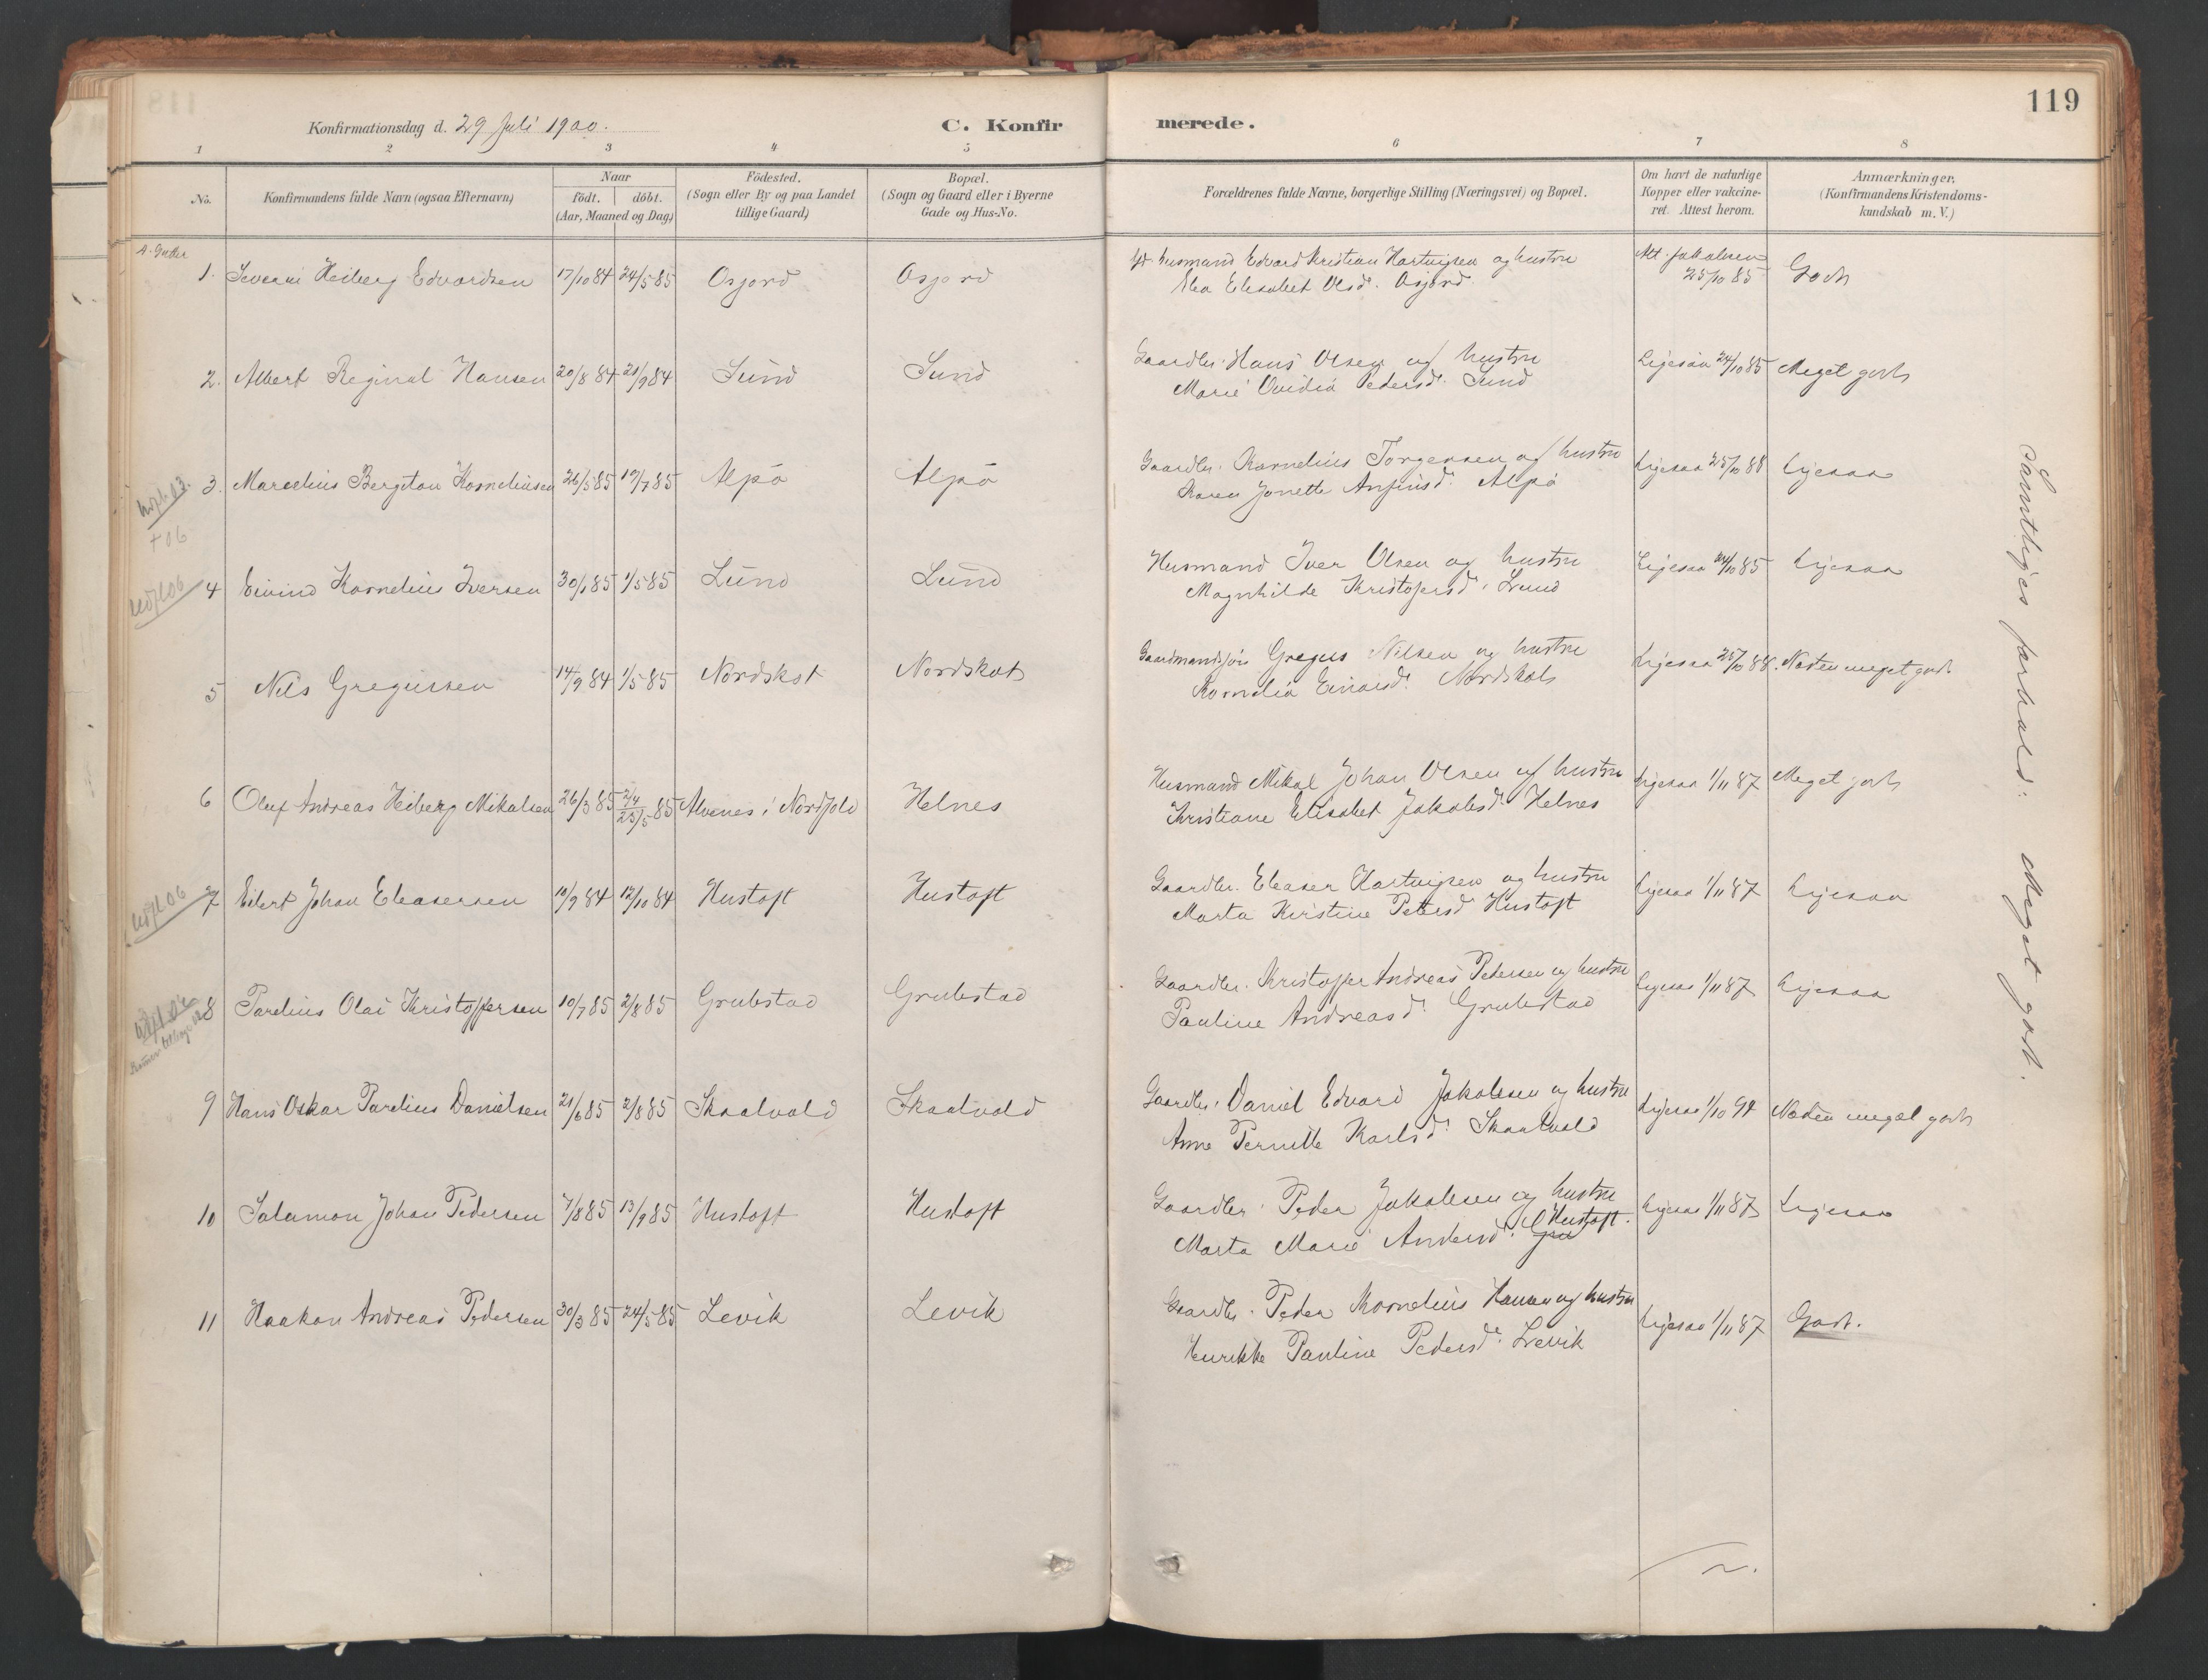 119
Konfirmationsdag d. 29 Juli 1900.
C. Konfirmerede.
1 2 3 4 5 6 7 8
No.
Konfirmandens fulde Navn (ogsaa Efternavn)
Naar
födt. döbt.
(Aar, Maaned og Dag)
Födested.
(Sogn eller By og paa Landet
tillige Gaard)
Bopæl.
(Sogn og Gaard eller i Byerne
Gade og Hus-No.
Forældrenes fulde Navne, borgerlige Stilling (Næringsvei) og Bopæl.
Om havt de naturlige
Kopper eller vakcine-
ret. Attest herom.
Anmærkninger.
(Konfirmandens Kristendoms-
kundskab m. V.)
A. Gutter
1. Severin Heiberg Edvardsen 17/10 84 24/5 85 Osjord Osjord
Husmand Edvard Kristian Hartvigsen og hustru
Elisabet Olsd. Osjord
Att. Jakobsen
25/10 85
Godt
2. Albert Reginal Hansen 20/8 84 21/9 84 Sund Sund
Gaardbr. Hans Olsen og hustru
Marie Ovidia Pedersd. Sund
Ligesaa 24/10 85 Meget godt
3. Marcelius Bergiton Kornelius​en 26/5 85 19/7 85 Alpö Alpö
Gaardbr. Kornelius Torgersen og hustru
Karen Jonette Anfinsd. Alpö
Ligesaa 25/10 88 Ligesaa
+ 06
4 Eivind Kornelius Iversen 30/1 85 1/5 85 Lund Lund
Husmand Iver Olsen og hustru
Magnhilde Kristofersd. Lund
Ligesaa 24/10 85 Ligesaa
5 Nils Gregussen 14/9 84 1/5 85 Nordskot Nordskot
Gregus Nilsen og hustru
Kornelia Einarsd. Nordskot
Ligesaa 25/10 88. Næsten meget godt
6 Oluf Andreas Heiberg Mikalsen 26/3 85 2/4 25/5 85 Alvenes i Nordfold Helnes
Husmand Mikal Johan Olsen og hustru
Kristiane Elisabet Jakobsd. Helnes
Ligesaa 1/11 87 Meget godt
7 Eilert Johan Eleasersen 10/9 84 12/10 84 Hustoft Hustoft
Gaardbr. Eleaser Hartvigsen og hustru
Marta Kirstine Petersd. Hustoft
Ligesaa 1/11 87 Ligesaa
8 Parelius Olai Kristoffersen 10/7 85 2/8 85 Grubstad Grubstad
Gaardbr. Kristoffer Andreas Pedersen og hustru
Pauline Andreasd. Grubstad
Ligesaa 1/11 87 Ligesaa
9 Hans Oskar Parelius Danielsen 21/6 85 2/8 85 Skaalvold Skaalvold
Gaardbr. Daniel Edvard Jakobsen og hustru
Anne Pernille Karlsd. Skaalvold
Ligesaa 1/10 94 Næsten meget godt
10 Salamon Johan Pedersen 7/8 85 13/9 85 Hustoft Hustoft
Gaardbr. Peder Jakobsen og hustru
Marta Marie Andersd. Hustoft.
Ligesaa 1/11 87 Ligesaa
11 Haakon Andreas Pedersen 30/3 85 24/5 85 Levik Levik
Gaardbr. Peder Kornelius Hansen og hustru
Henrikke Pauline Pedersd. Levik
Ligesaa 1/11 87 Godt.
Samtliges forhold: Meget godt.